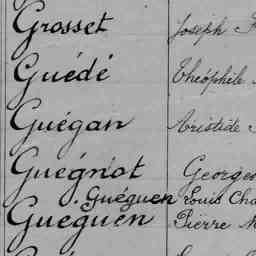 Grosset Joseph
Guédé Théophile
Guégan Aristide
Guégnot Georges
Guéguen Louis Cha
Gueguen Pierre